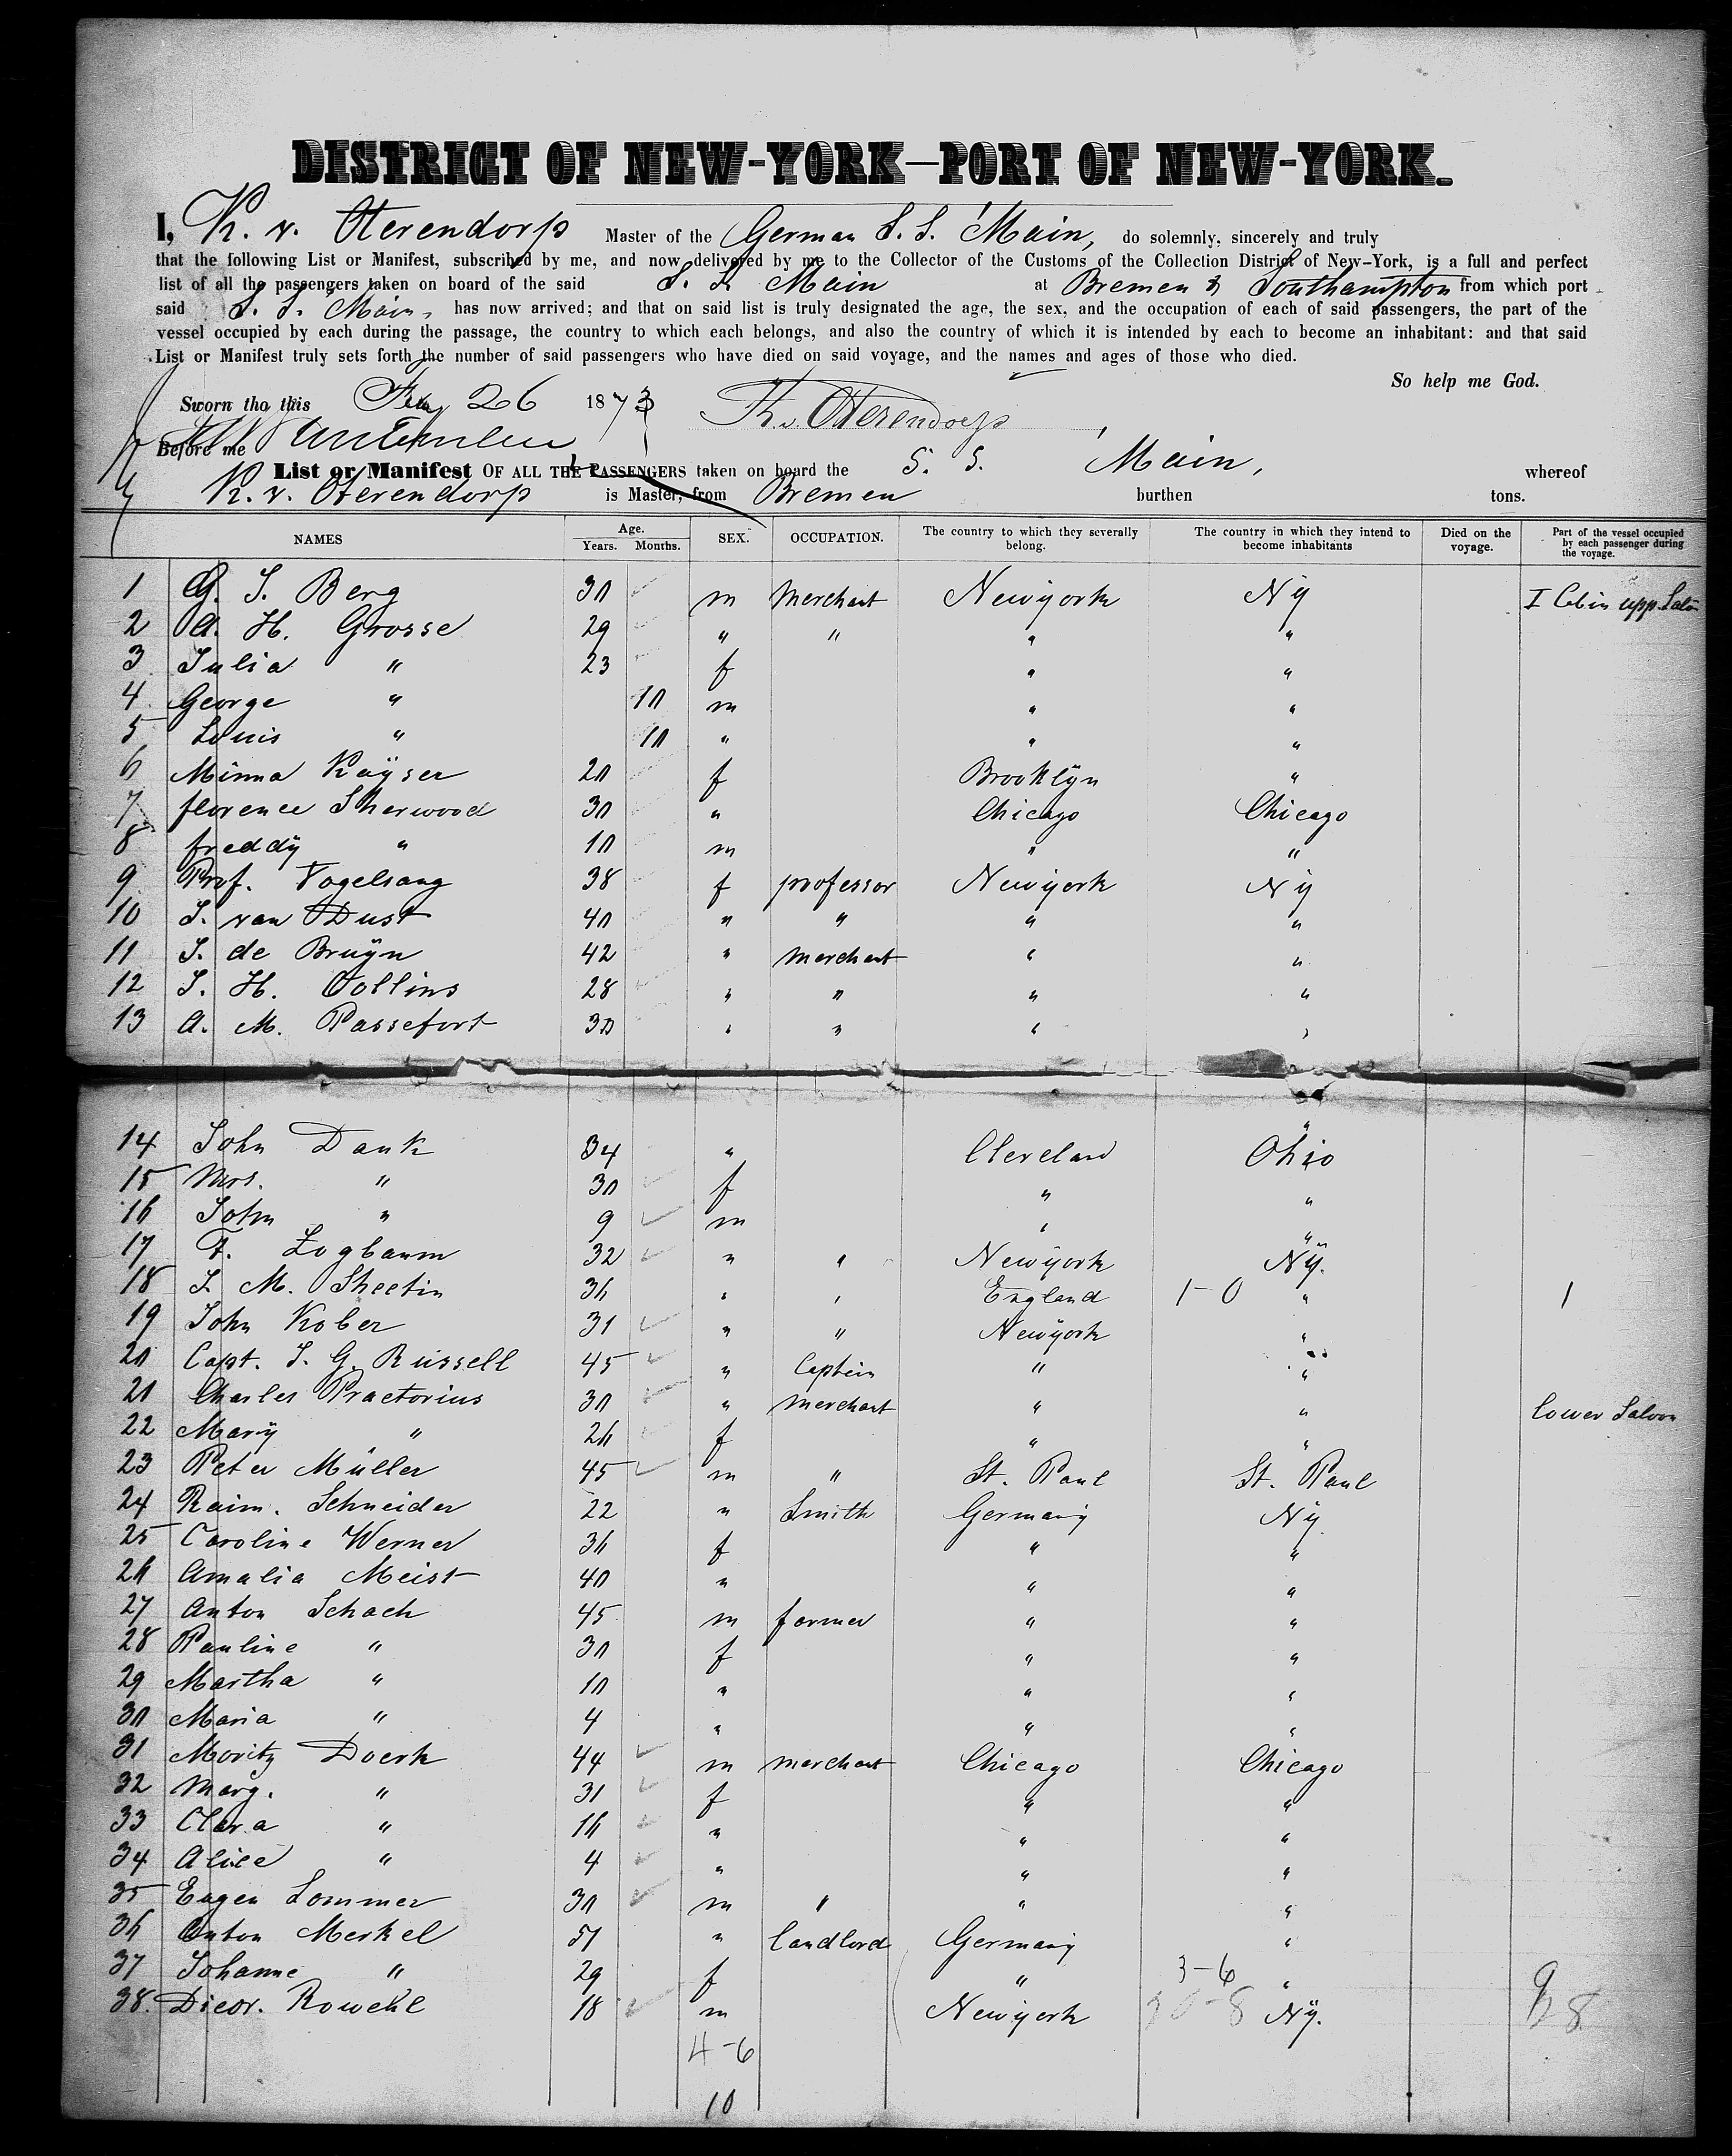 DISTRICT OF NEW-YORK—PORT OF NEW-YORK.
I, K. v. Oterendorp Master of the German S. S. Main, do solemnly, sincerely and truly
that the following List or Manifest, subscribed by me, and now delivered by me to the Collector of the Customs of the Collection District of New-York, is a full and perfect
list of all the passengers taken on board of the said S. S. Main at Bremen & Southampton from which port
said S. S. Main, has now arrived; and that on said list is truly designated the age, the sex, and the occupation of each of said passengers, the part of the
vessel occupied by each during the passage, the country to which each belongs, and also the country of which it is intended by each to become an inhabitant: and that said
List or Manifest truly sets forth the number of said passengers who have died on said voyage, and the names and ages of those who died.
So help me God.
Sworn tho this 26 1873 K. v. Oterendorp
Before me
List or Manifest OF ALL THE PASSENGERS taken on board the S. S. Main, whereof
K. v. Oterendorp is Master, from Bremen burthen tons.
NAMES Age. Years. Months. SEX. OCCUPATION. The country to which they severally belong. The country in which they intend to become inhabitants Died on the voyage. Part of the vessel occupied by each passenger during the voyage.
1 G. S. Berg 30 m Merchant Newyork Ny I Cabin upp. Salon
2 A. H. Grosse 29 " " " "
3 Julia " 23 f " "
4 George " 10 m " "
5 Louis " 10 " " "
6 Minna Kayser 20 f Brooklyn "
7 florence Sherwood 30 " Chicago Chicago
8 freddy " 10 m " "
9 Prof. Vogelsang 38 f professor Newyork Ny
10 J. van Dust 40 " " " "
11 J. de Bruyn 42 " Merchant " "
12 J. H. Collins 28 " " " "
13 A. M. Passefort 30 " " " "
14 John Dank 34 " " Cleveland Ohio
15 Mrs. " 30 f " "
16 John " 9 m " "
17 F. Zogbaum 32 " " Newyork Ny.
18 J. M. Sheetin 36 " " England 1-0 " 1
19 John Kober 31 " " Newyork "
20 Capt. J. G. Russell 45 " Captain " "
21 Charles Praetorius 30 " Merchant " " lower Saloon
22 Mary " 26 f " "
23 Peter Müller 45 m " St. Paul St. Paul
24 Raim. Schneider 22 " Smith Germany Ny
25 Caroline Werner 36 f " "
26 Amalia Meist 40 " " "
27 Anton Schach 45 m farmer " "
28 Pauline " 30 f " "
29 Martha " 10 " " "
30 Maria " 4 " " "
31 Moritz Doerk 44 m merchant Chicago Chicago
32 Marg. " 31 f " "
33 Clara " 16 " " "
34 Alice " 4 " " "
35 Eugen Sommer 30 m " " "
36 Anton Merkel 51 " landlord Germany "
37 Johanne " 29 f " 3-6 "
38. Rowekl 18 m Newyork Ny.
4-6
10